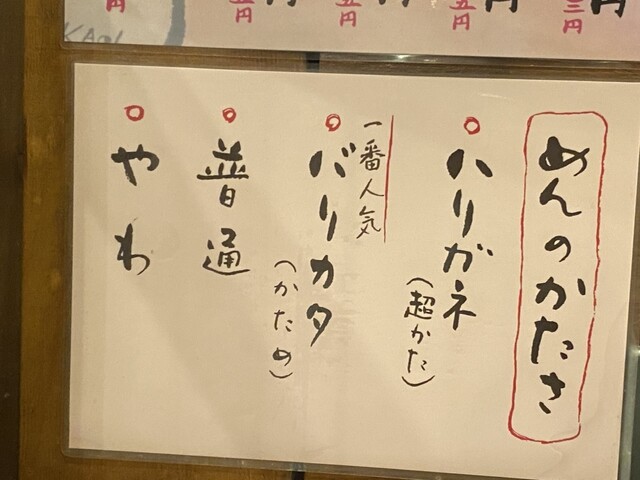 円
円
五円
円
五円
円
三円
円
めんのかたさ
ハリガネ
(超かた)
一番人気
バリカタ
(かため)
普通
やわ